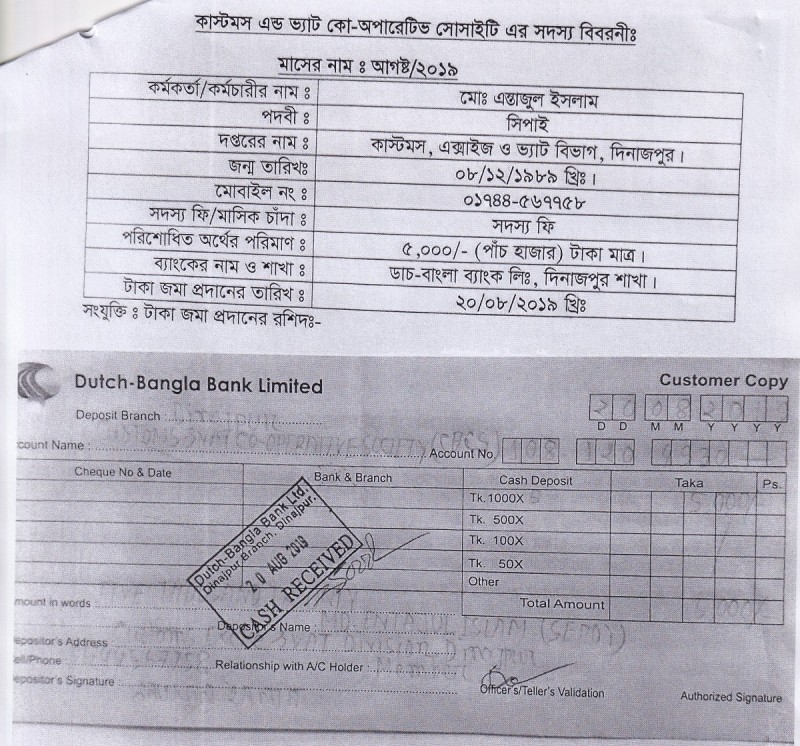 কাস্টমস এন্ড ভ্যাট কো-অপারেটিভ সোসাইটি এর সদস্য বিবরনীঃ
মাসের নাম ঃ আগষ্ট/২০১৯
কর্মকর্তা/কর্মচারীর নাম ঃ মোঃ এন্তাজুল ইসলাম
পদবী ঃ সিপাই
দপ্তরের নাম ঃ কাস্টমস, এক্সাইজ ও ভ্যাট বিভাগ, দিনাজপুর।
জন্ম তারিখঃ ০৮/১২/১৯৮৯ খ্রিঃ।
মোবাইল নং ঃ ০১৭৪৪-৫৬৭৭৫৮
সদস্য ফি/মাসিক চাঁদা ঃ সদস্য ফি
পরিশোধিত অর্থের পরিমাণ ঃ ৫,০০০/- (পাঁচ হাজার) টাকা মাত্র।
ব্যাংকের নাম ও শাখা ঃ ডাচ-বাংলা ব্যাংক লিঃ, দিনাজপুর শাখা।
টাকা জমা প্রদানের তারিখ ঃ ২০/০৮/২০১৯ খ্রিঃ
সংযুক্তি ঃ টাকা জমা প্রদানের রশিদঃ-
Dutch-Bangla Bank Limited
Customer Copy
Deposit Branch :
20 08 2019
D D M M Y Y Y Y
count Name : Account No. 108 120
Cheque No & Date Bank & Branch Cash Deposit Taka Ps.
Tk. 1000X 5
Tk. 500X
Tk. 100X
Tk. 50X
Other
Dutch-Bangla Bank Ltd.
Dinajpur Branch, Dinajpur.
20 AUG 2019
CASH RECEIVED
Total Amount
mount in words
Depositor's Name : (SEPOY)
epositor's Address
ell/Phone Relationship with A/C Holder :
epositor's Signature : Officer's/Teller's Validation Authorized Signature